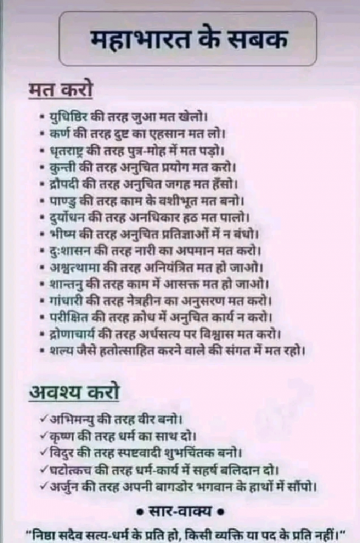 महाभारत के सबक
मत करो
• युधिष्ठिर की तरह जुआ मत खेलो।
• कर्ण की तरह दुष्ट का एहसान मत लो।
• धृतराष्ट्र की तरह पुत्र-मोह में मत पड़ो।
• कुन्ती की तरह अनुचित प्रयोग मत करो।
• द्रौपदी की तरह अनुचित जगह मत हँसो।
• पाण्डु की तरह काम के वशीभूत मत बनो।
• दुर्योधन की तरह अनधिकार हठ मत पालो।
• भीष्म की तरह अनुचित प्रतिज्ञाओं में न बंधो।
• दुःशासन की तरह नारी का अपमान मत करो।
• अश्वत्थामा की तरह अनियंत्रित मत हो जाओ।
• शान्तनु की तरह काम में आसक्त मत हो जाओ।
• गांधारी की तरह नेत्रहीन का अनुसरण मत करो।
• परीक्षित की तरह क्रोध में अनुचित कार्य न करो।
• द्रोणाचार्य की तरह अर्धसत्य पर विश्वास मत करो।
• शल्य जैसे हतोत्साहित करने वाले की संगत में मत रहो।
अवश्य करो
✓अभिमन्यु की तरह वीर बनो।
✓कृष्ण की तरह धर्म का साथ दो।
✓विदुर की तरह स्पष्टवादी शुभचिंतक बनो।
✓घटोत्कच की तरह धर्म-कार्य में सहर्ष बलिदान दो।
✓अर्जुन की तरह अपनी बागडोर भगवान के हाथों में सौंपो।
• सार-वाक्य •
"निष्ठा सदैव सत्य-धर्म के प्रति हो, किसी व्यक्ति या पद के प्रति नहीं।"